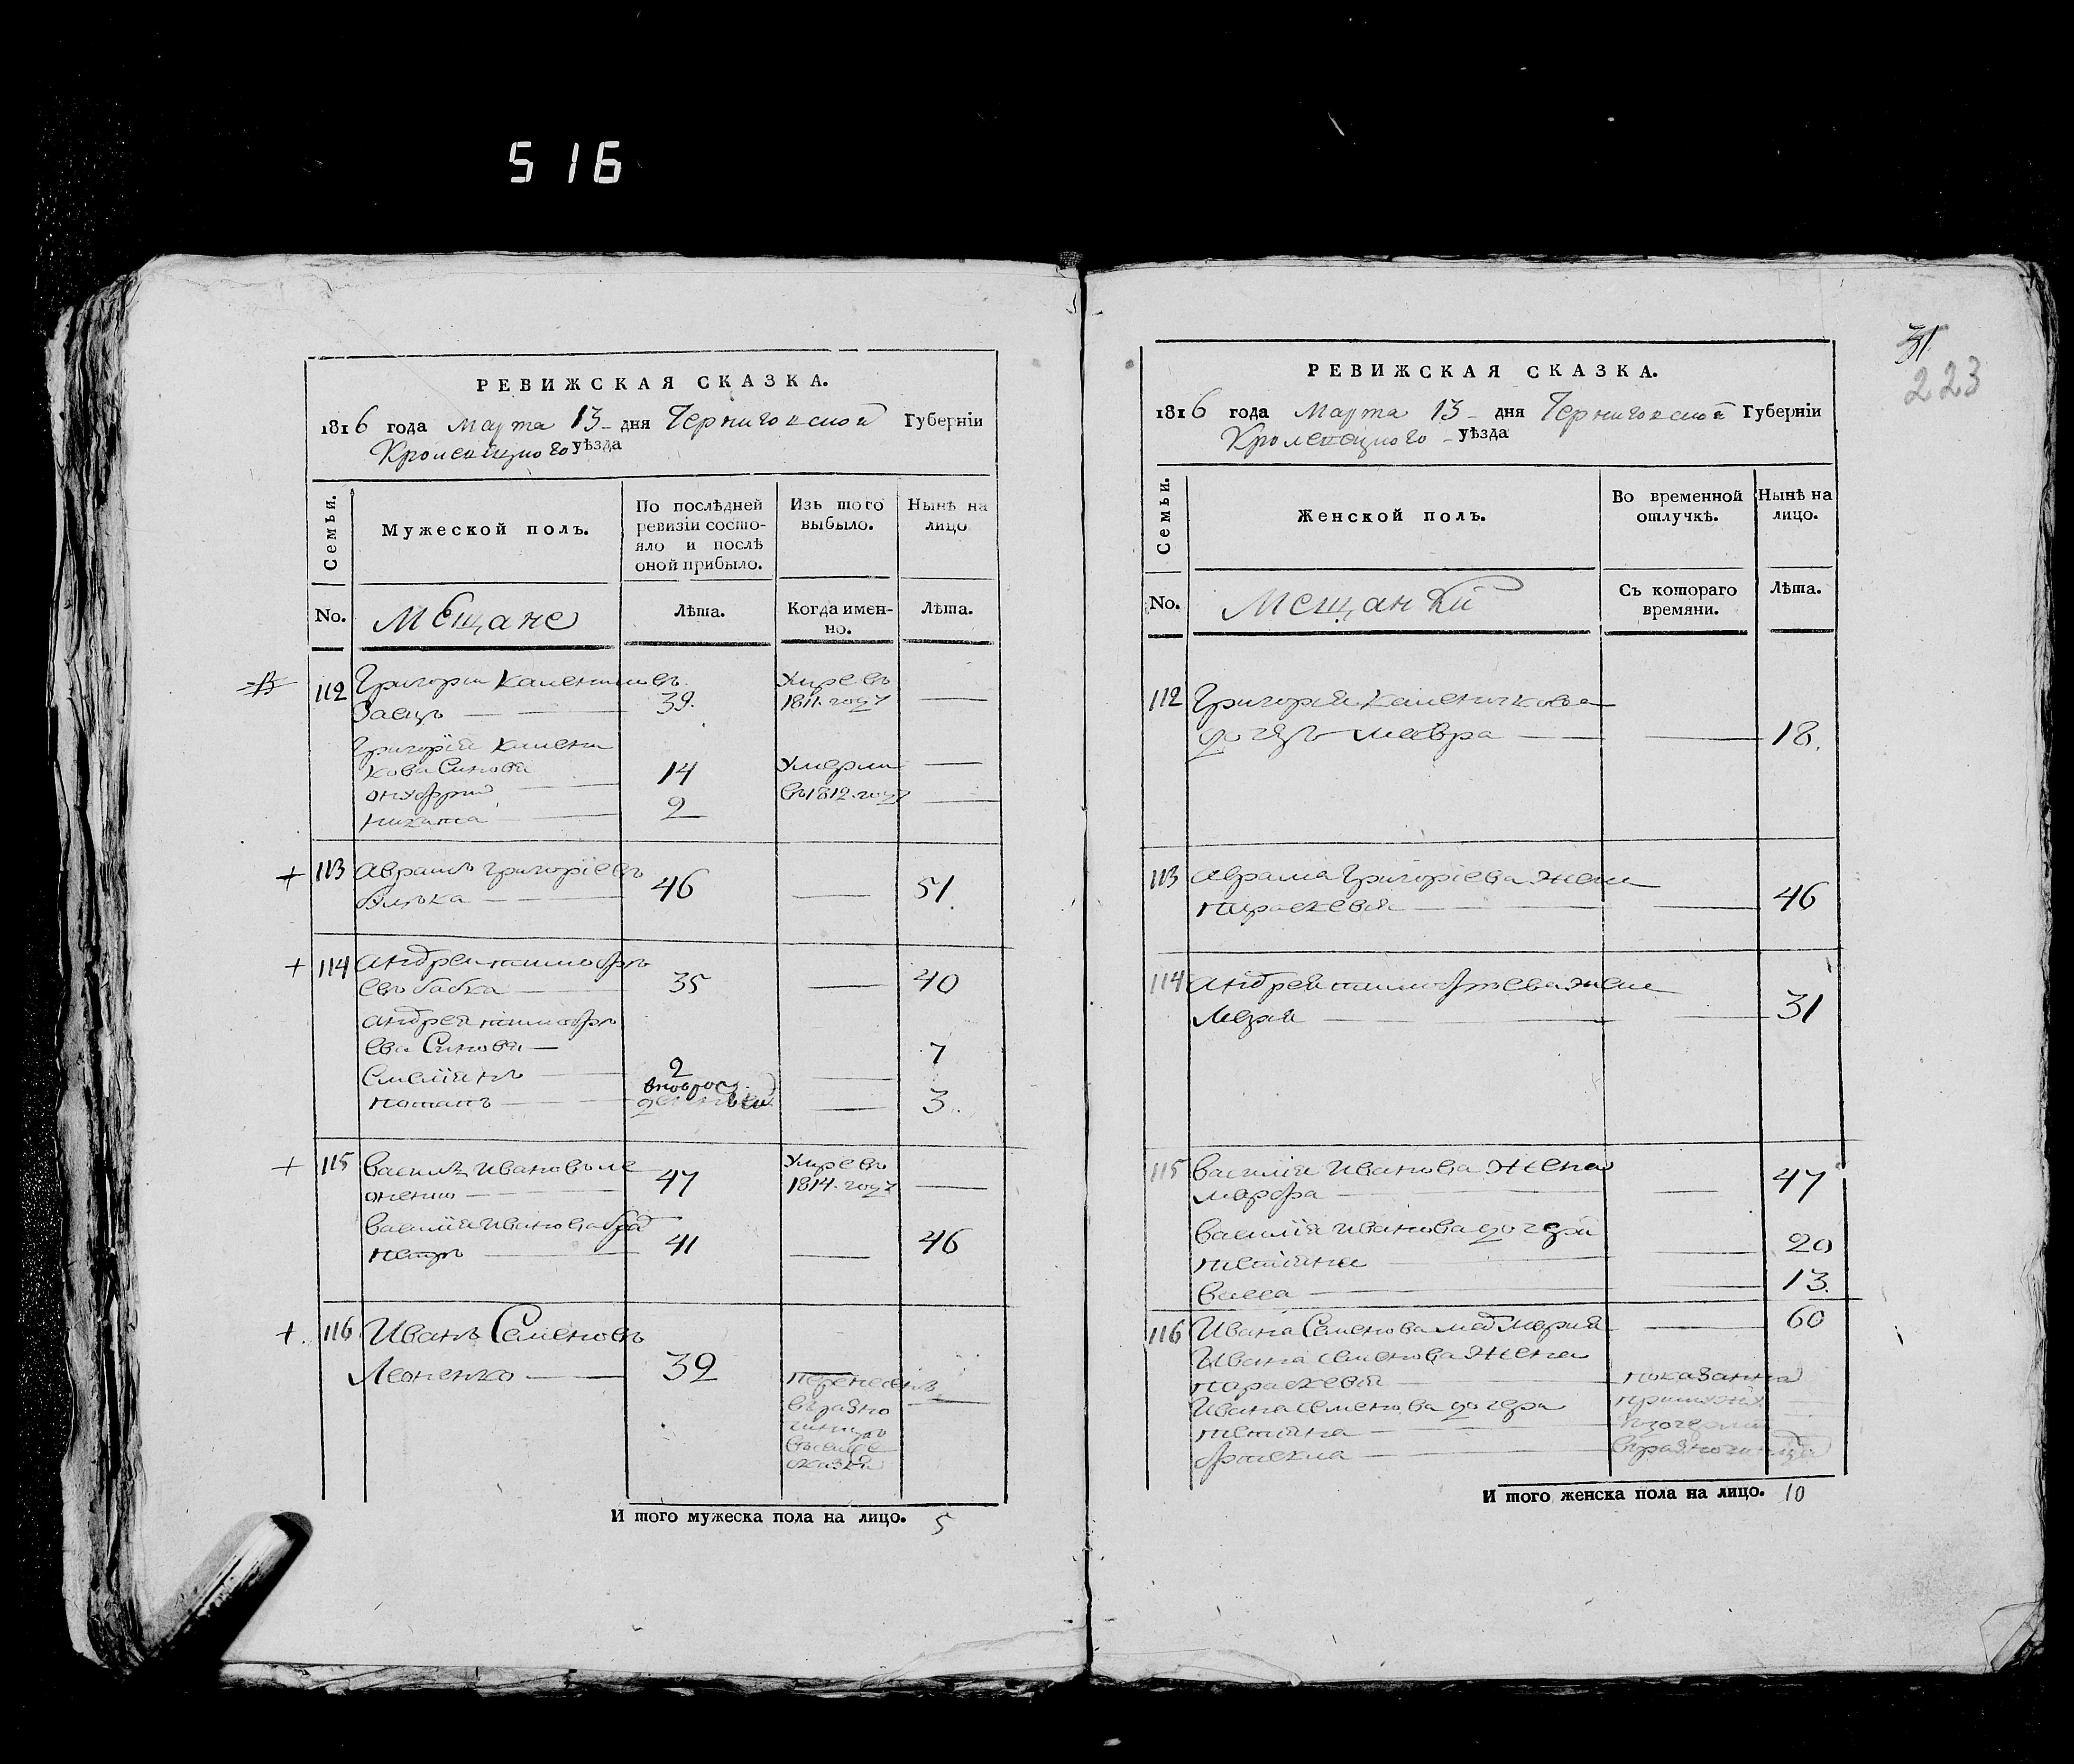 516
РЕВИЖСКАЯ СКАЗКА.
1816 года Марта 13 дня Черниговской Губерніи
Кролевецкого уѣзда
Семьи.
Мужеской полъ.
По послѣдней ревизіи состояло и послѣ оной прибыло.
Изъ того выбыло.
Нынѣ на лицо
No.
Мещане
Лѣта.
Когда именно.
Лѣта.
112 Григорий
Заецъ — 39. Умре въ 1811. году —
Григорія
Синовя
Онуфрий — 14 Умерли —
Никита — 2 въ 1812. году —
113 Аврамъ Григоріевъ
46 — 51.
114 Андрей Тимофѣ
евъ бабка — 35 — 40
Андрея Тимофѣ
ева Синовя —
Емелианъ — 2 — 7
Потапъ — — 3.
115 Василь Ивановъ Ле
оненко — 47 Умре въ 1814. году —
Василія Иванова брат
Петръ — 41 — 46
116 Иванъ Семеновъ
Леоненко — 32 перенесенъ
въ разно
чинцовъ
сказки
И того мужеска пола на лицо. 5
31
223
РЕВИЖСКАЯ СКАЗКА.
1816 года Марта 13 дня Черниговской Губерніи
Кролевецкого уѣзда
Семьи.
Женской полъ.
Во временной отлучкѣ.
Нынѣ на лицо.
No.
Мещанки
Съ котораго времяни.
Лѣта.
112 Григорія
дочерь Мавра — — 18.
113 Аврама Григоріева жена
Параскевія — — 46
114 Андрея Тимофѣева жена
Марія — — 31
115 Василія Иванова жена
Марфа — — 47
Василія Иванова дочери
Татіяна — 20
Васса — — 13.
116 Ивана Семенова мать Марія — 60
Ивана Семенова жена
Параскевія — показанна
Ивана Семенова дочери
Татіяна —
Фтекла — въ разночинца
И того женска пола на лицо. 10